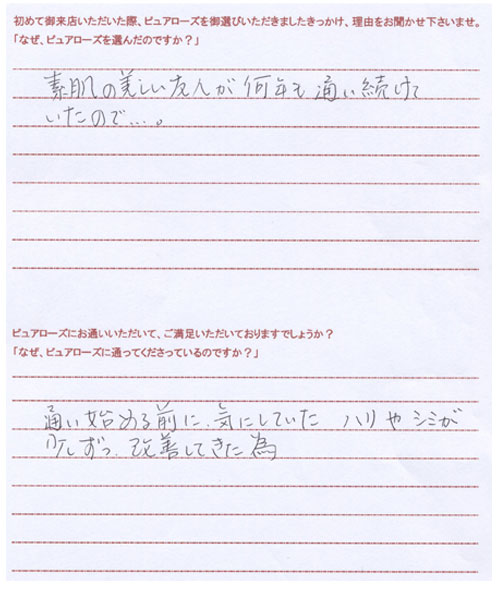 初めて御来店いただいた際、ピュアローズを御選びいただきましたきっかけ、理由をお聞かせ下さいませ。
「なぜ、ピュアローズを選んだのですか？」
素肌の美しい友人が何年も通い続けて
いたので…。
ピュアローズにお通いいただいて、ご満足いただいておりますでしょうか？
「なぜ、ピュアローズに通ってくださっているのですか？」
通い始める前に、気にしていた ハリやシミが
少しずつ、改善してきた為